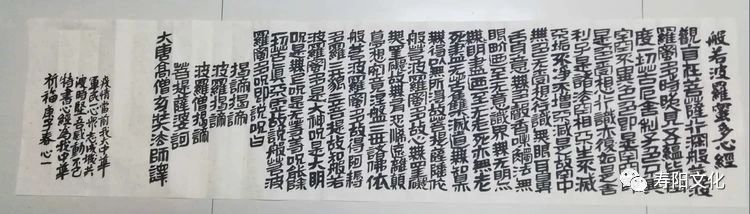 般若波羅蜜多心經
觀自在菩薩行深般若波
羅蜜多時照見五蘊皆空
度一切苦厄舍利子色不異
空空不異色色即是空空即
是色受想行識亦復如是舍
利子是諸法空相不生不滅
不垢不淨不增不減是故空中
無色無受想行識無眼耳鼻
舌身意無色聲香味觸法無
眼界乃至無意識界無無明亦
無無明盡乃至無老死亦無老
死盡無苦集滅道無智亦
無得以無所得故菩提薩埵依
般若波羅蜜多故心無罣礙
無罣礙故無有恐怖遠離顛倒
夢想究竟涅槃三世諸佛依
般若波羅蜜多故得阿耨
多羅三藐三菩提故知般若
波羅蜜多是大神咒是大明
咒是無上咒是無等等咒能除
一切苦真實不虛故說般若波
羅蜜多咒即說咒曰
揭諦揭諦
波羅揭諦
波羅僧揭諦
菩提薩婆訶
大唐高僧玄奘法師譯
疫情當前我大中華
軍民心齊志成城共
渡時艱吾感動不已
特書心經為我中華
祈福 庚子春 心一
寿阳文化